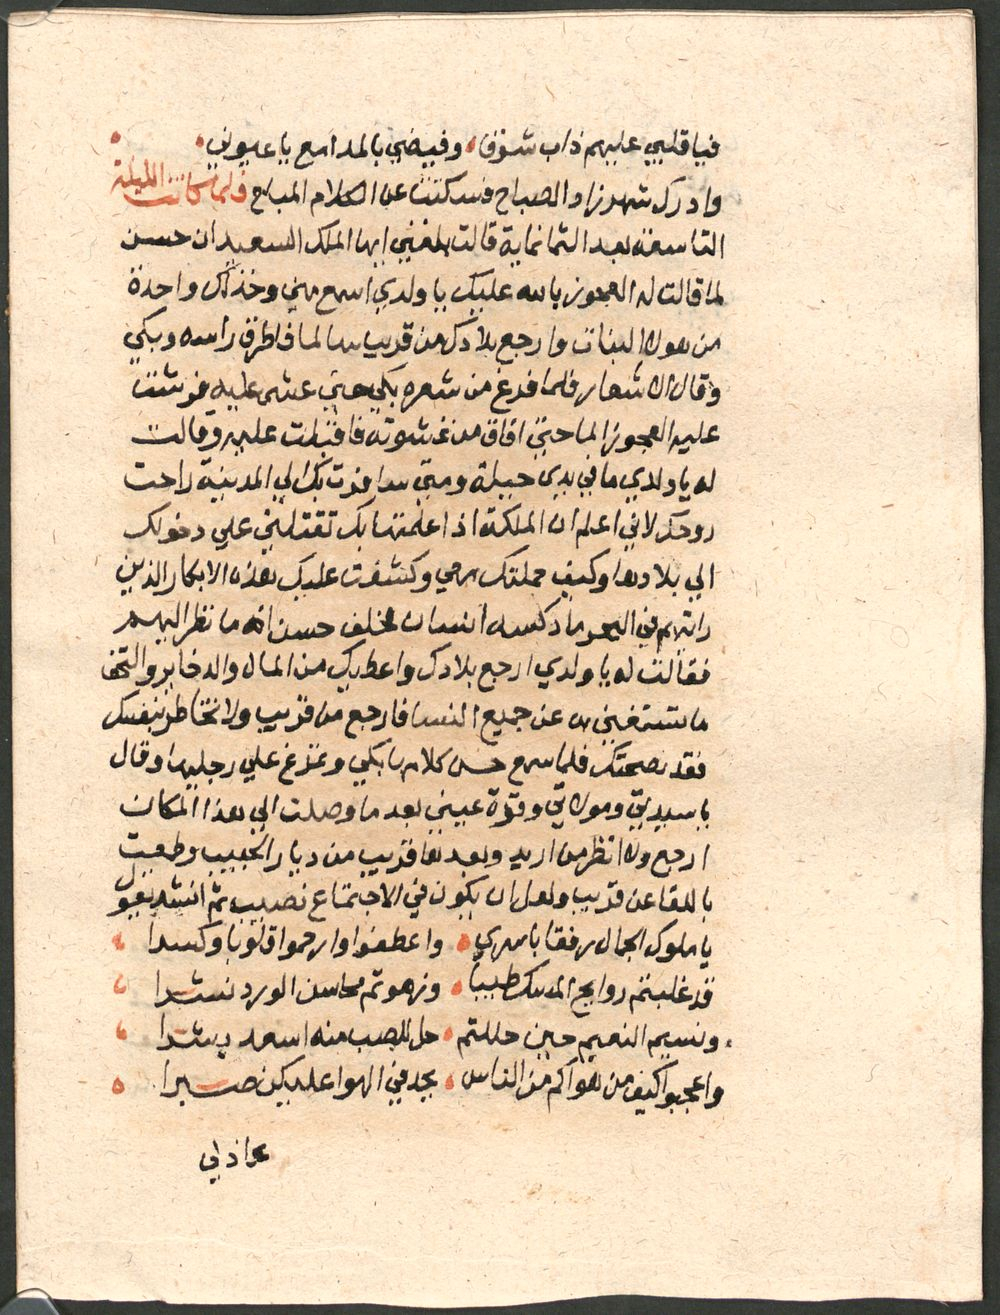 فيا قلبي عليهم ذاب شوقا وفيضي بالمدامع يا عيوني
وادرك شهرزاد الصباح فسكتت عن الكلام المباح فلما كانت الليلة
التاسعة بعد الثمانماية قالت بلغني ايها الملك السعيد ان حسن
لما قالت له العجوز بالله عليك يا ولدي اسمع مني وخذ لك واحدة
من هولا البنات وارجع بلادك من قريب سالما فاطرق راسه وبكي
وقال الاشعار فلما فرغ من شعره بكي حتي غشي عليه فرشت
عليه العجوز الما حتي افاق من غشوته فاقبلت عليه وقالت
له يا ولدي ما بي يدي حيلة ومتي سافرت بك الي المدينة راحت
روحك لاني اعلم ان الملكة اذا علمت بك تقتلني علي دخولك
الي بلادها وكيف حملتك معي وكشفت عليك هذه الابكار الذين
رايتهم في البحر ما انسان فحلف حسن انه ما نظر اليهم
فقالت له يا ولدي ارجع بلادك واعطيك من المال والدخاير والتحف
ما تستغني به عن جميع النسا فارجع من قريب ولا تخاطر بنفسك
فقد نصحتك فلما سمع حسن كلامها بكي وتمرغ علي رجليها وقال
يا سيدتي ومولاتي وقرة عيني بعد ما وصلت الي هذا المكان
ارجع ولا انظر من اريد وبعد بقا قريب من ديار الحبيب وطمعت
باللقا عن قريب ولعل ان يكون في الاجتماع نصيب ثم انشد يقول
يا ملوك الجمال رفقا باسري واعطفوا وارحموا قلوبا وكبدا
قد غلبتم روايح المسك طيبا وزهوتم محاسن الورد نشرا
ونسيم النعيم حين حللتم حل للصب منه اسعد بشرا
واعجبوا كيف من هواكم من الناس يجد في الهوا عليكن صبرا
عاذلي